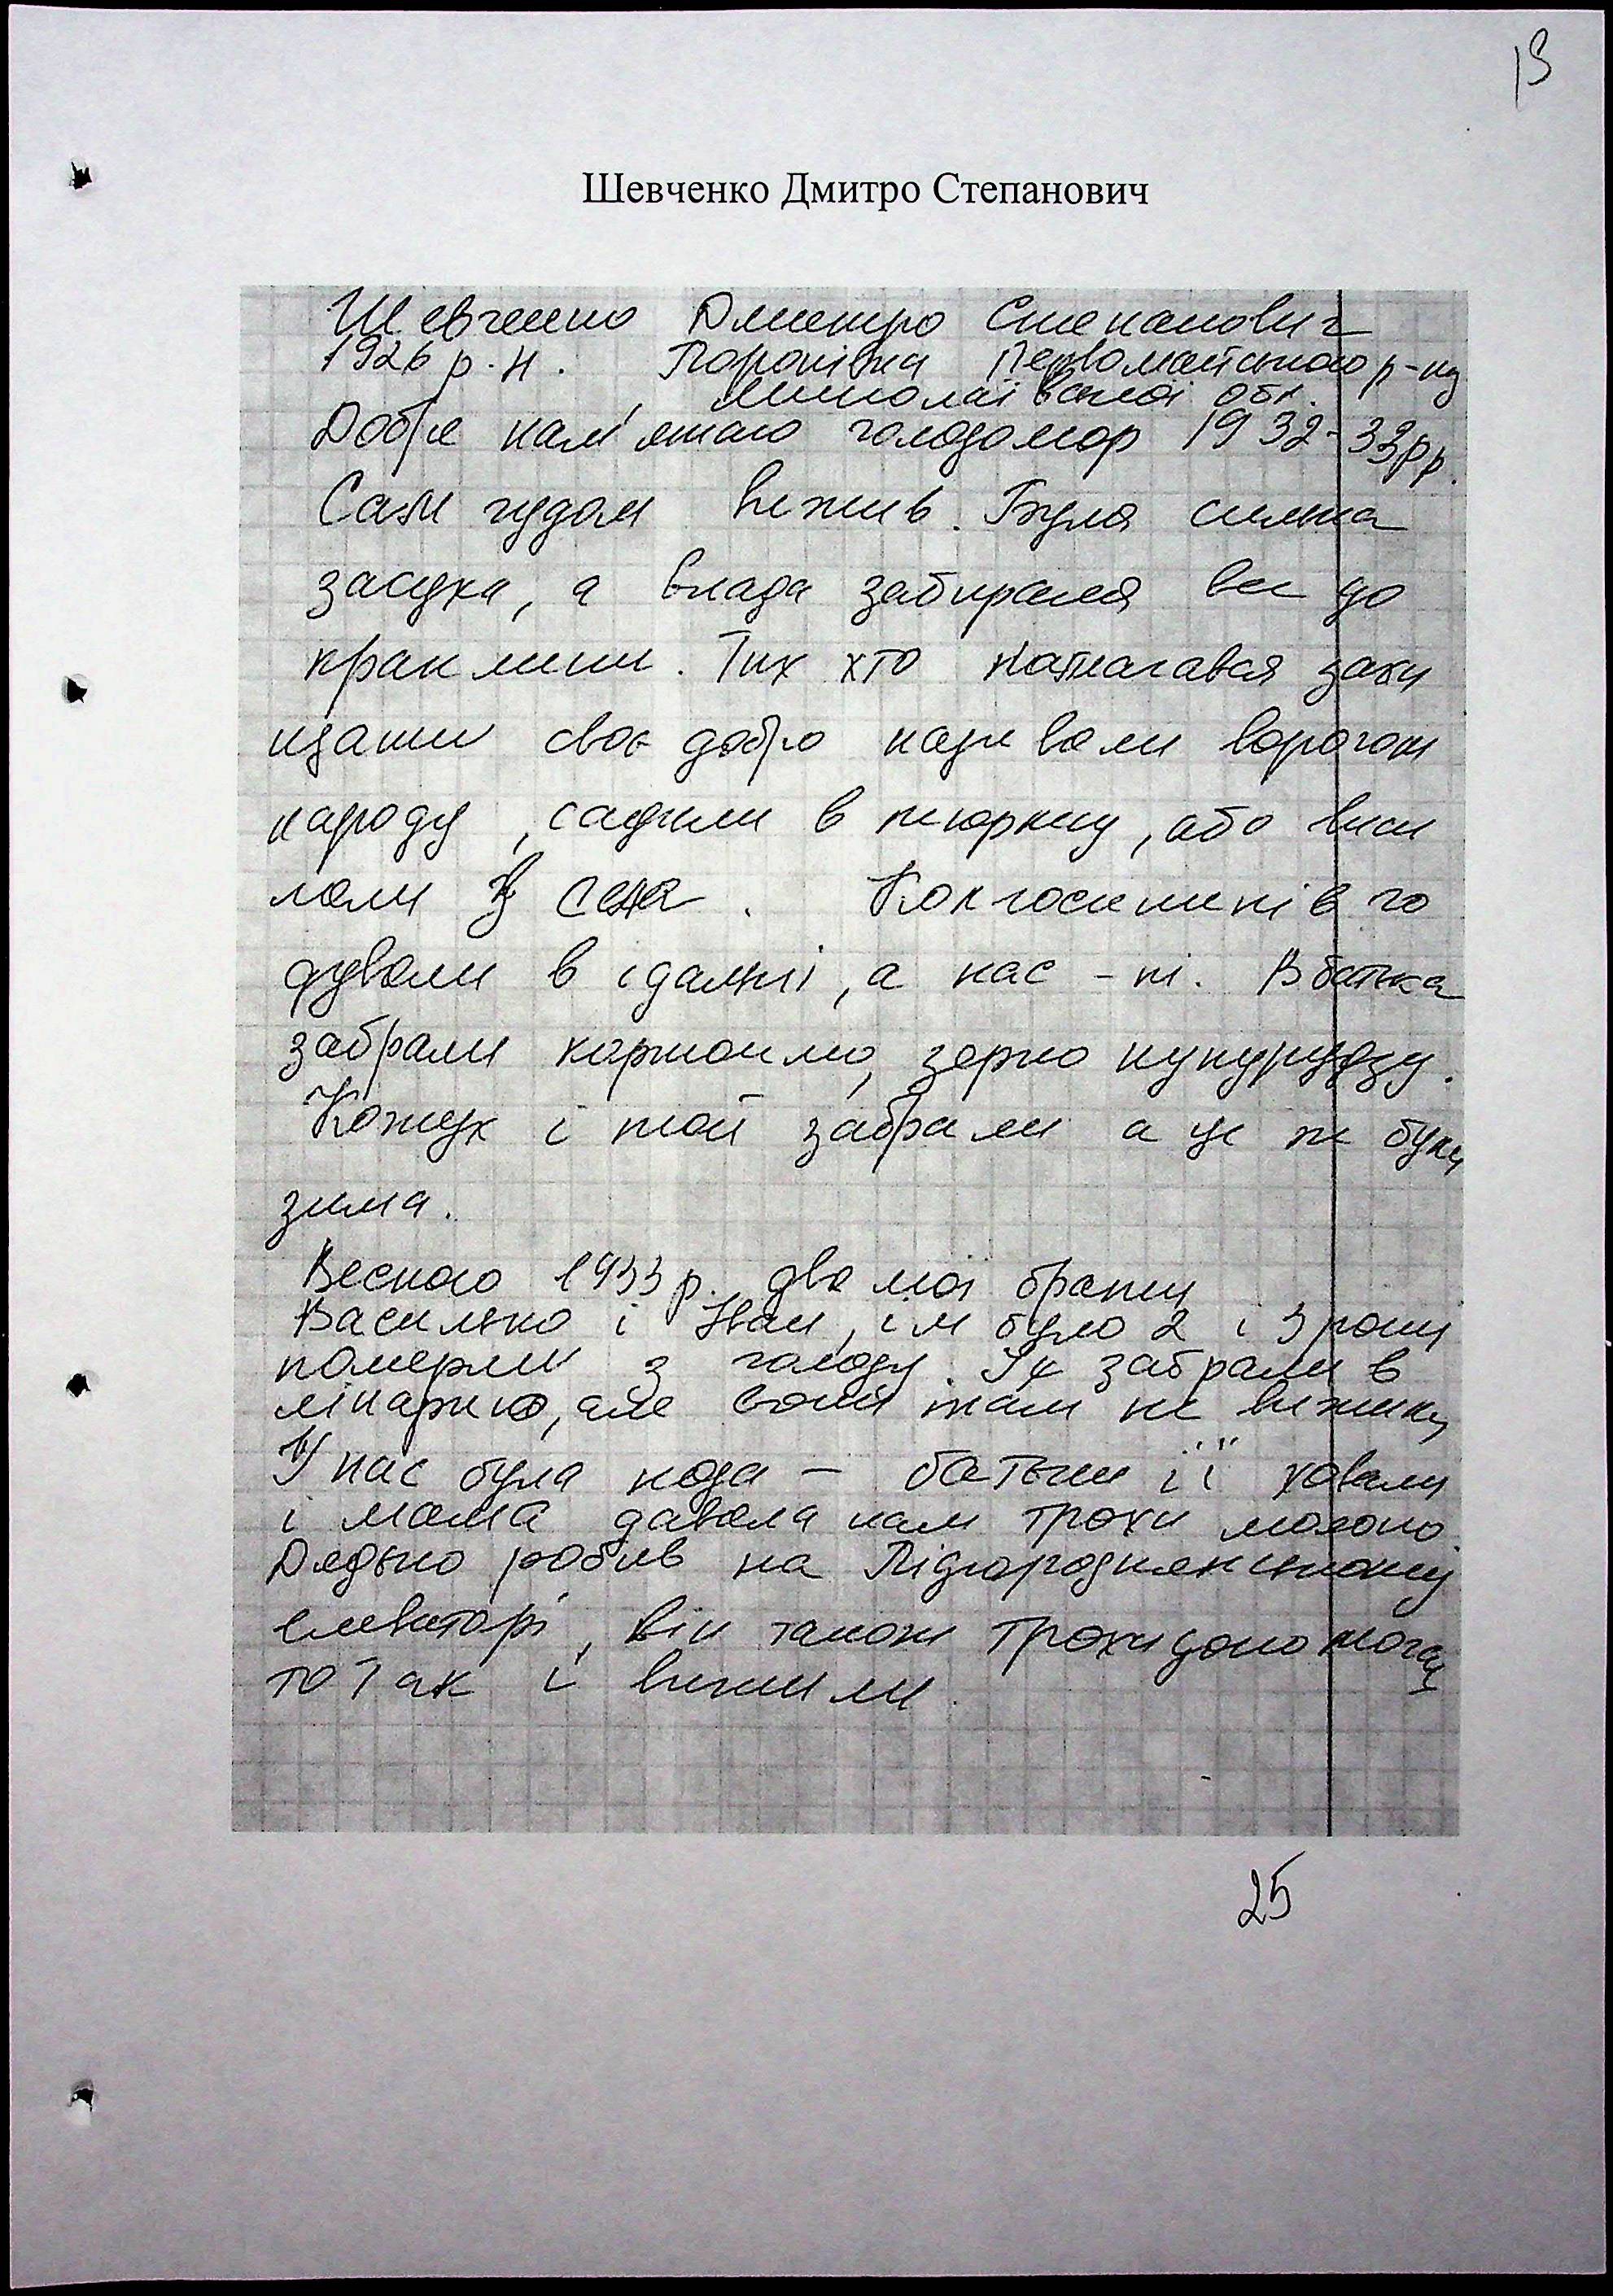 13
Шевченко Дмитро Степанович
Шевченко Дмитро Степанович
1926 р.н. Поропівка Первомайського р-ну
Миколаївської обл.
Добре пам'ятаю голодомор 1932-33рр.
Сам чудом вижив. Була сильна
засуха, а влада забирала все до
краплини. Тих хто намагався захи
щати своє добро називали ворогом
народу, садили в тюрму, або виси
лали з села. Колгоспників го
дували в їдальні, а нас - ні. В батька
забрали картоплю, зерно кукурудзу.
Кожух і той забрали а це ж була
зима.
Весною 1933 р. два мої брати
Василько і Іван, їм було 2 і 3 роки
померли з голоду. Їх забрали в
лікарню, але вони там не вижили
У нас була коза - батьки її ховали
і мама давала нам трохи молоко
Дядько робив на Підгороднянському
елеваторі, він також трохи допомогав
то так і вижили.
25